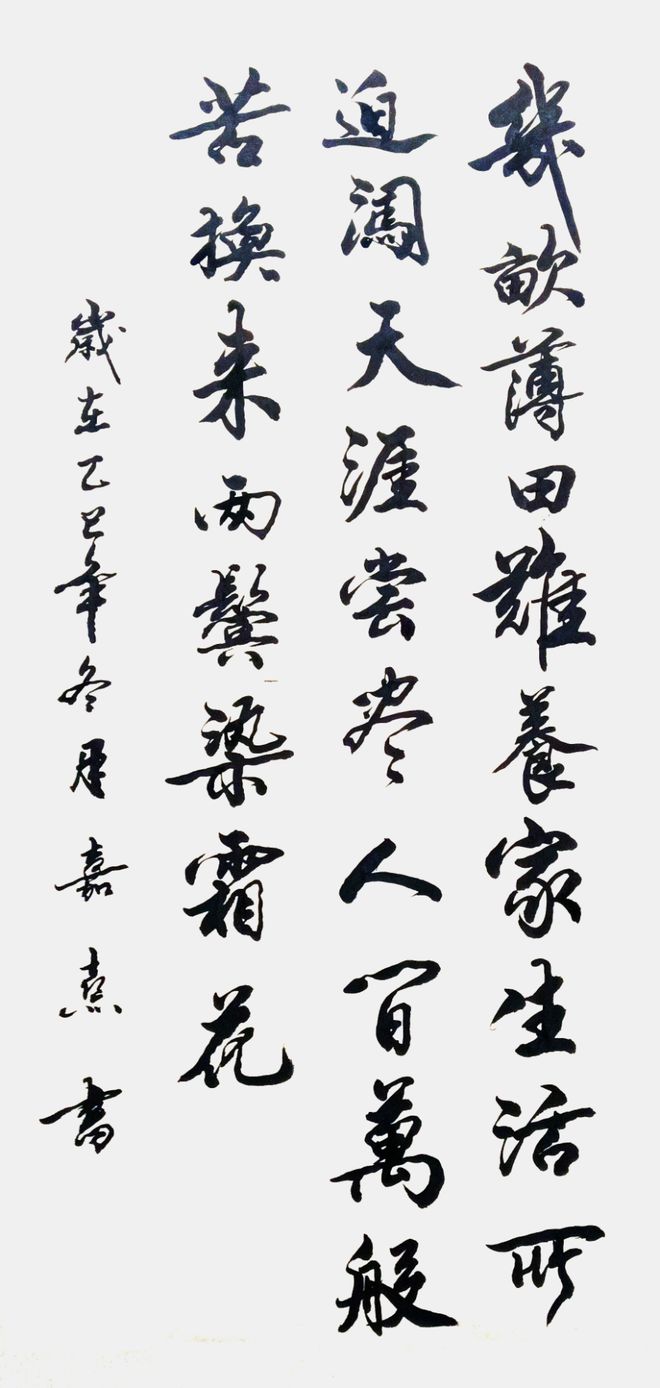 幾畝薄田難養家生活所
迫闖天涯嘗盡人间萬般
苦换来两鬓染霜花
歲在乙巳年冬月嘉熹書